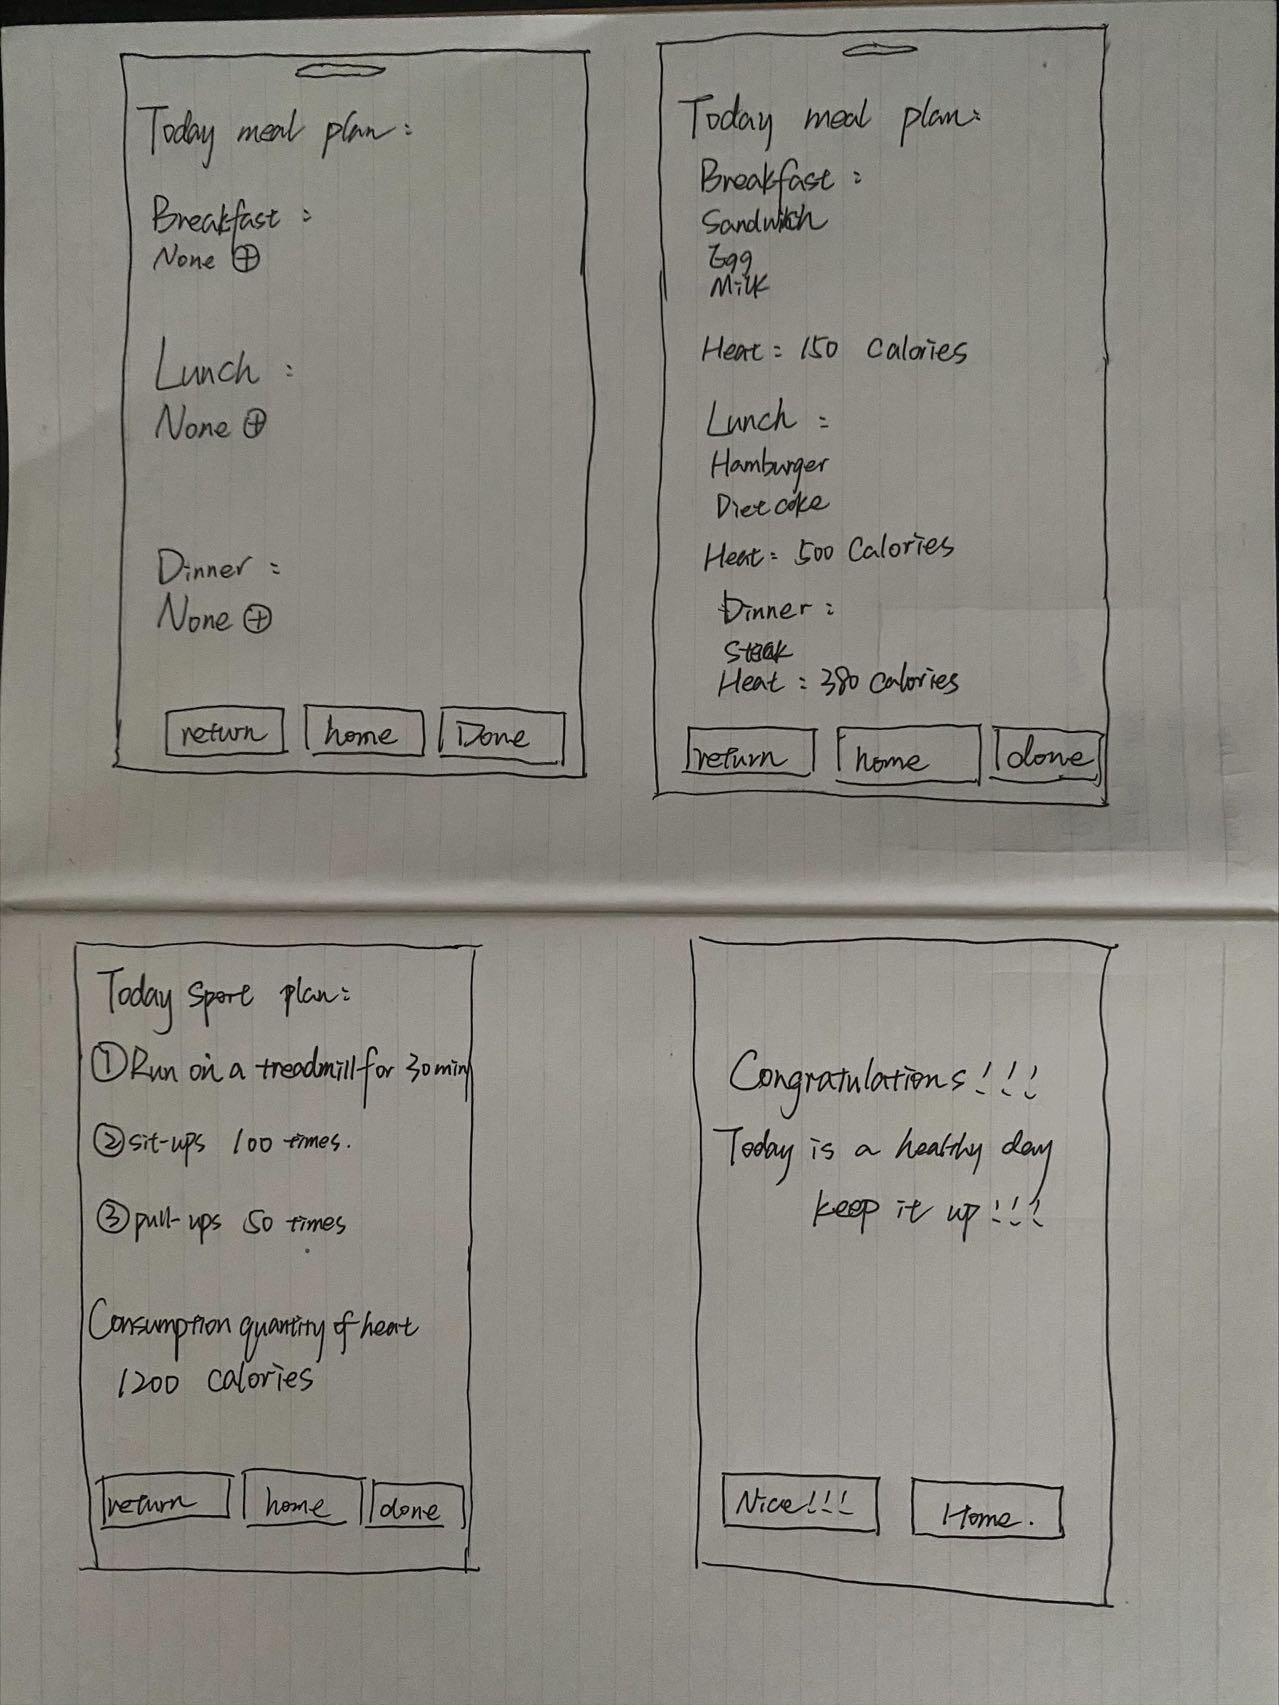 Today meal plan:
Breakfast:
None ⊕
Lunch:
None ⊕
Dinner:
None ⊕
return home Done
Today meal plan:
Breakfast:
Sandwich
Egg
Milk
Heat: 150 Calories
Lunch:
Hamburger
Diet coke
Heat: 500 Calories
Dinner:
Steak
Heat: 380 Calories
return home done
Today sport plan:
① Run on a treadmill for 30 min
② sit-ups 100 times.
③ pull-ups 50 times
Consumption quantity of heat
1200 calories
return home done
Congratulations!!!
Today is a healthy day
keep it up!!!
Nice!!! Home.